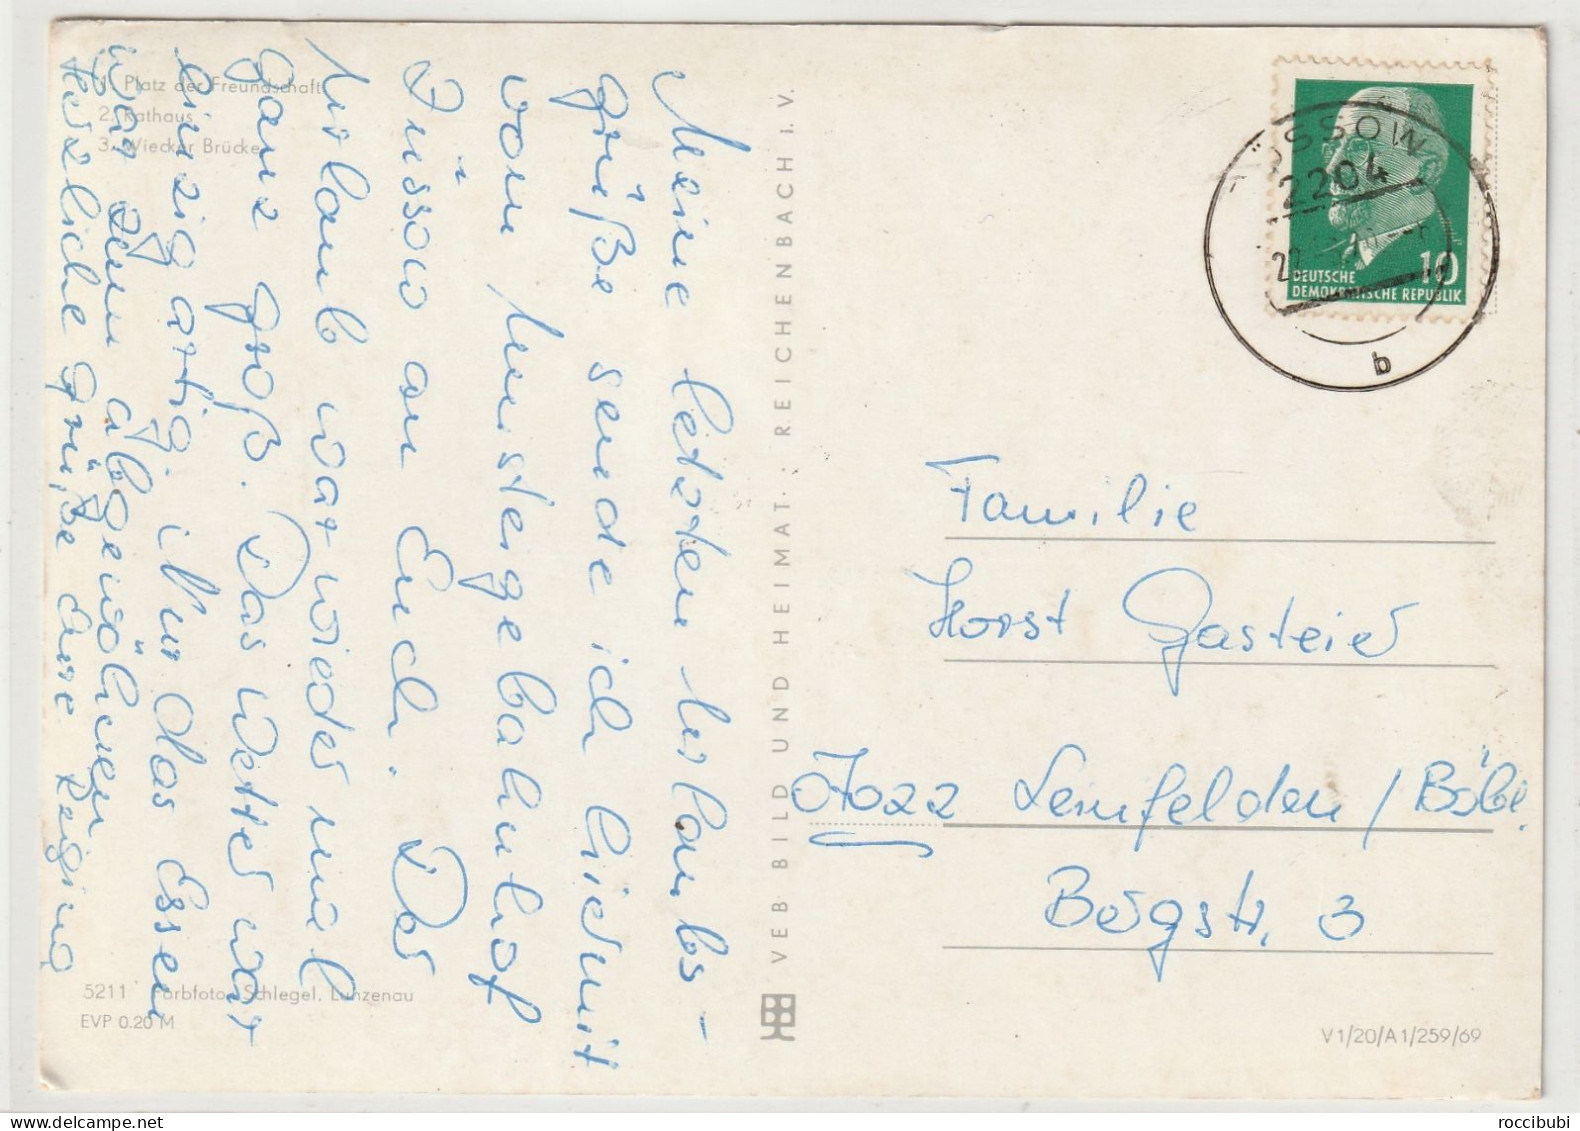 1. Platz der Freundschaft
2. Rathaus
3. Wiecker Brücke
Meine letzten Urlaubs-
grüße sende ich hiermit
vom Umsteigebahnhof
Züssow an Euch. Der
Urlaub war wieder mal
ganz groß. Das Wetter war
einzigartig. Nur das Essen
war zum abgewöhnen
Herzliche Grüße Eure
5211 Farbfoto: Schlegel, Lunzenau
EVP 0.20 M
VEB BILD UND HEIMAT · REICHENBACH I. V.
ÜSSOW
2204
b
10
DEUTSCHE
DEMOKRATISCHE REPUBLIK
Familie
Horst Gasteier
7022 Leinfelden / Böbl.
Bergstr. 3
V1/20/A1/259/69
roccibubi